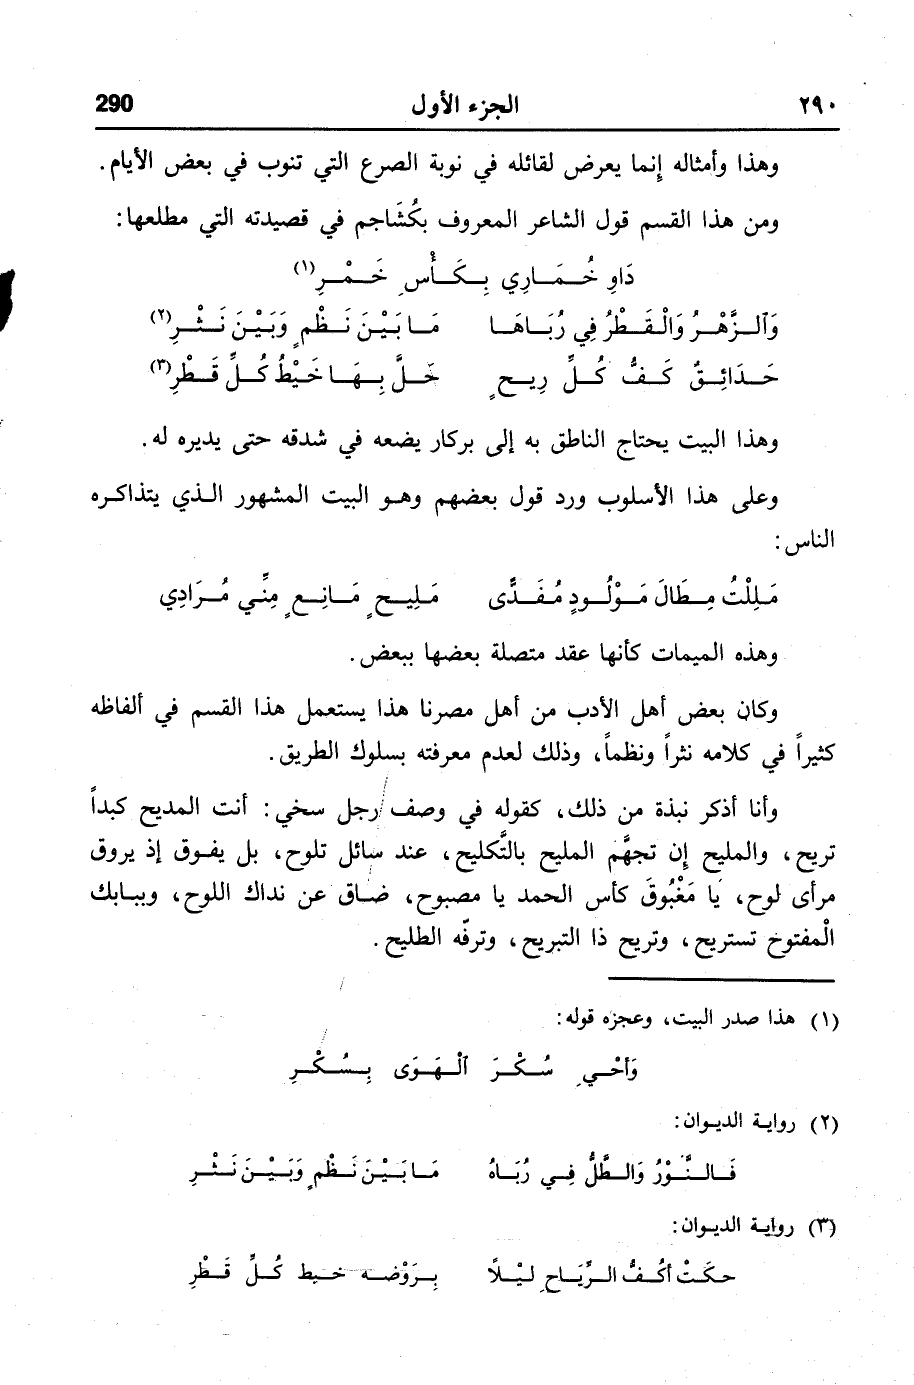 ٢٩٠ الجزء الأول 290
وهذا وأمثاله إنما يعرض لقائله في نوبة الصرع التي تنوب في بعض الأيام.
ومن هذا القسم قول الشاعر المعروف بكُشَاجم في قصيدته التي مطلعها:
دَاوِ خُمَارِي بِكَأْسِ خَمْرِ(١)
وَٱلزَّهْرُ وَالْقَطْرُ فِي رُبَاهَا مَا بَيْنَ نَظْمٍ وَبَيْنَ نَثْرِ(٢)
حَدَائِقٌ كَفُّ كُلِّ رِيحٍ حَلَّ بِهَا خَيْطُ كُلِّ قَطْرِ(٣)
وهذا البيت يحتاج الناطق به إلى بركار يضعه في شدقه حتى يديره له.
وعلى هذا الأسلوب ورد قول بعضهم وهو البيت المشهور الذي يتذاكره
الناس:
مَلِلْتُ مِطَالَ مَوْلُودٍ مُفَدًّى مَلِيحٍ مَانِعٍ مِنِّي مُرَادِي
وهذه الميمات كأنها عقد متصلة بعضها ببعض.
وكان بعض أهل الأدب من أهل مصرنا هذا يستعمل هذا القسم في ألفاظه
كثيراً في كلامه نثراً ونظماً، وذلك لعدم معرفته بسلوك الطريق.
وأنا أذكر نبذة من ذلك، كقوله في وصف رجل سخي: أنت المديح كبداً
تريح، والمليح إن تجهَّم المليح بالتَّكليح، عند سائل تلوح، بل يفوق إذ يروق
مرأى لوح، يا مَغْبُوقَ كأس الحمد يا مصبوح، ضاق عن نداك اللوح، وببابك
الْمفتوح تستريح، وتريح ذا التبريح، وترفّه الطليح.
(١) هذا صدر البيت، وعجزه قوله:
وَأَحْيِ سُكْرَ ٱلْهَوَى بِسُكْرِ
(٢) رواية الديوان:
فَالنَّوْرُ وَالطَّلُّ فِي رُبَاهُ مَا بَيْنَ نَظْمٍ وَبَيْنَ نَثْرِ
(٣) رواية الديوان:
حكَتْ أكُفُّ الرِّيَاحِ ليْلًا بِرَوْضه خيط كُلِّ قَطْرِ